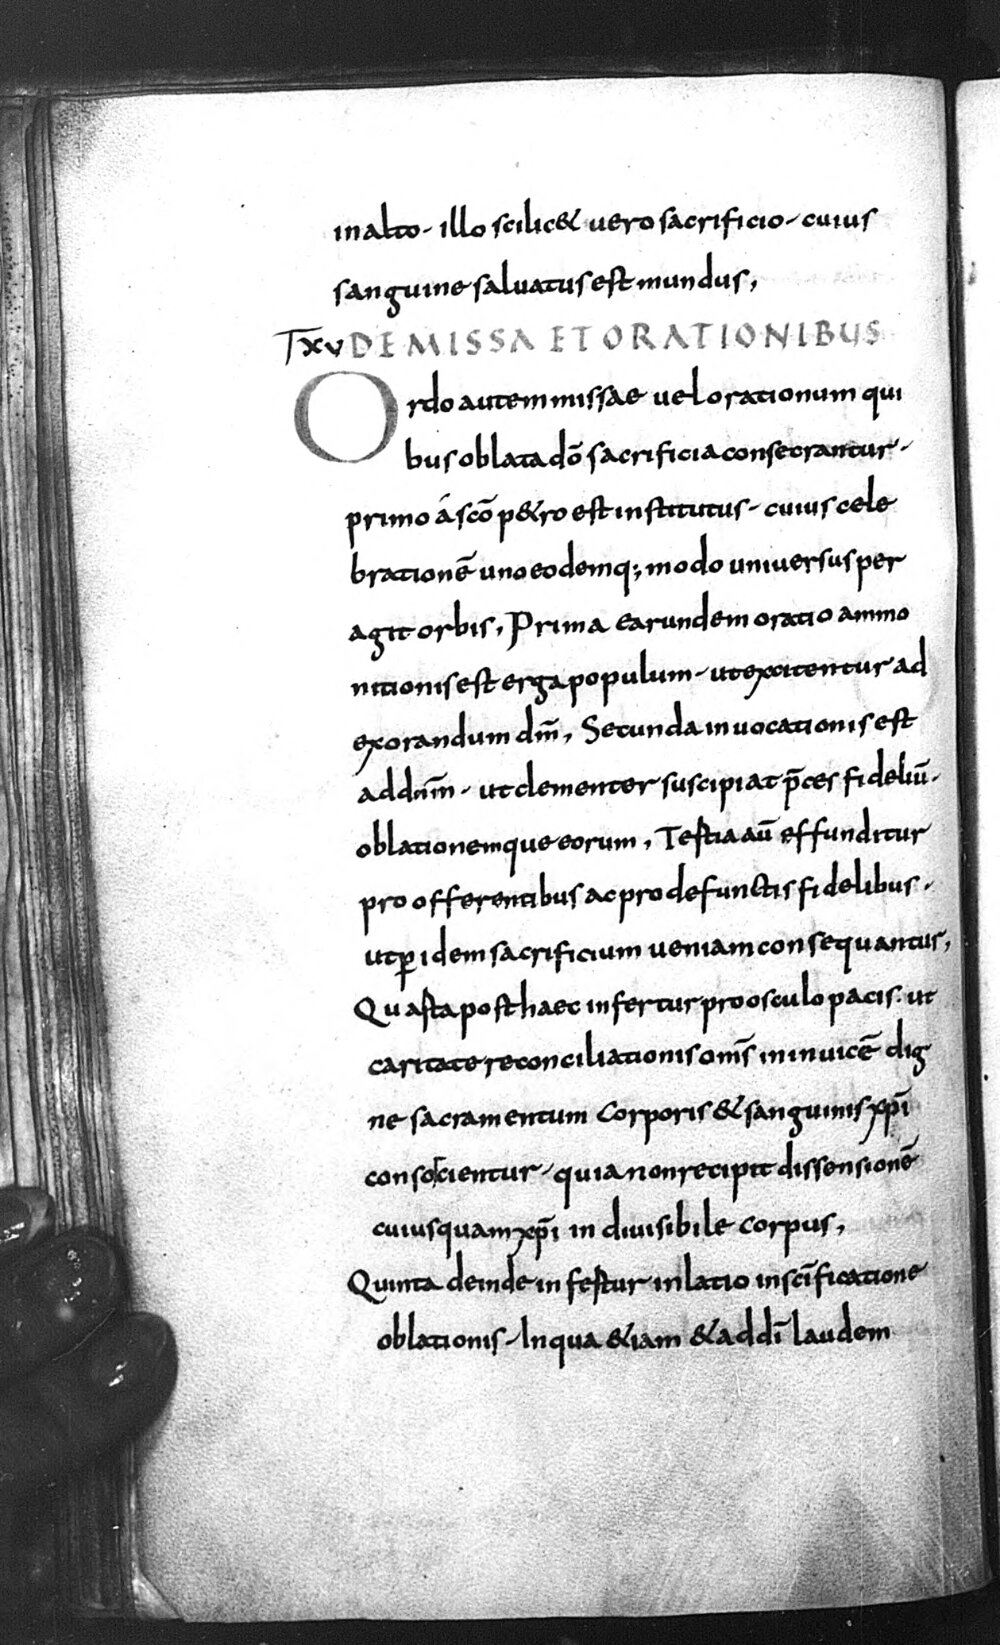 in alto· illo scilic& uero sacrificio· cuius
sanguine saluatus est mundus,
T̅xv DE MISSA ET ORATIONIBUS
Ordo autem missae uel orationum qui
bus oblata dō sacrificia consecrantur·
primo á scō p&ro est institutus· cuius cele
brationē uno eodemq; modo uniuersus per
agit orbis, Prima earundem oratio ammo
nitionis est erga populum· ut excitentur ad
exorandum dm̄, Secunda inuocationis est
ad dnm̄· ut clementer suscipiat p̄ces fideliū·
oblationemque eorum, Tertia aū effunditur
pro offerentibus ac pro defunctis fidelibus·
ut ꝑ idem sacrificium ueniam consequantur,
Quarta post haec infertur pro osculo pacis· ut
caritate reconciliationis om̄s in inuicē dig
ne sacramentum corporis & sanguinis xp̄i
consocientur· quia non recipit dissensionē
cuiusquam xp̄i indiuisibile corpus,
Quinta deinde infertur inlatio in scīficatione
oblationis· In qua &iam & ad dī laudem